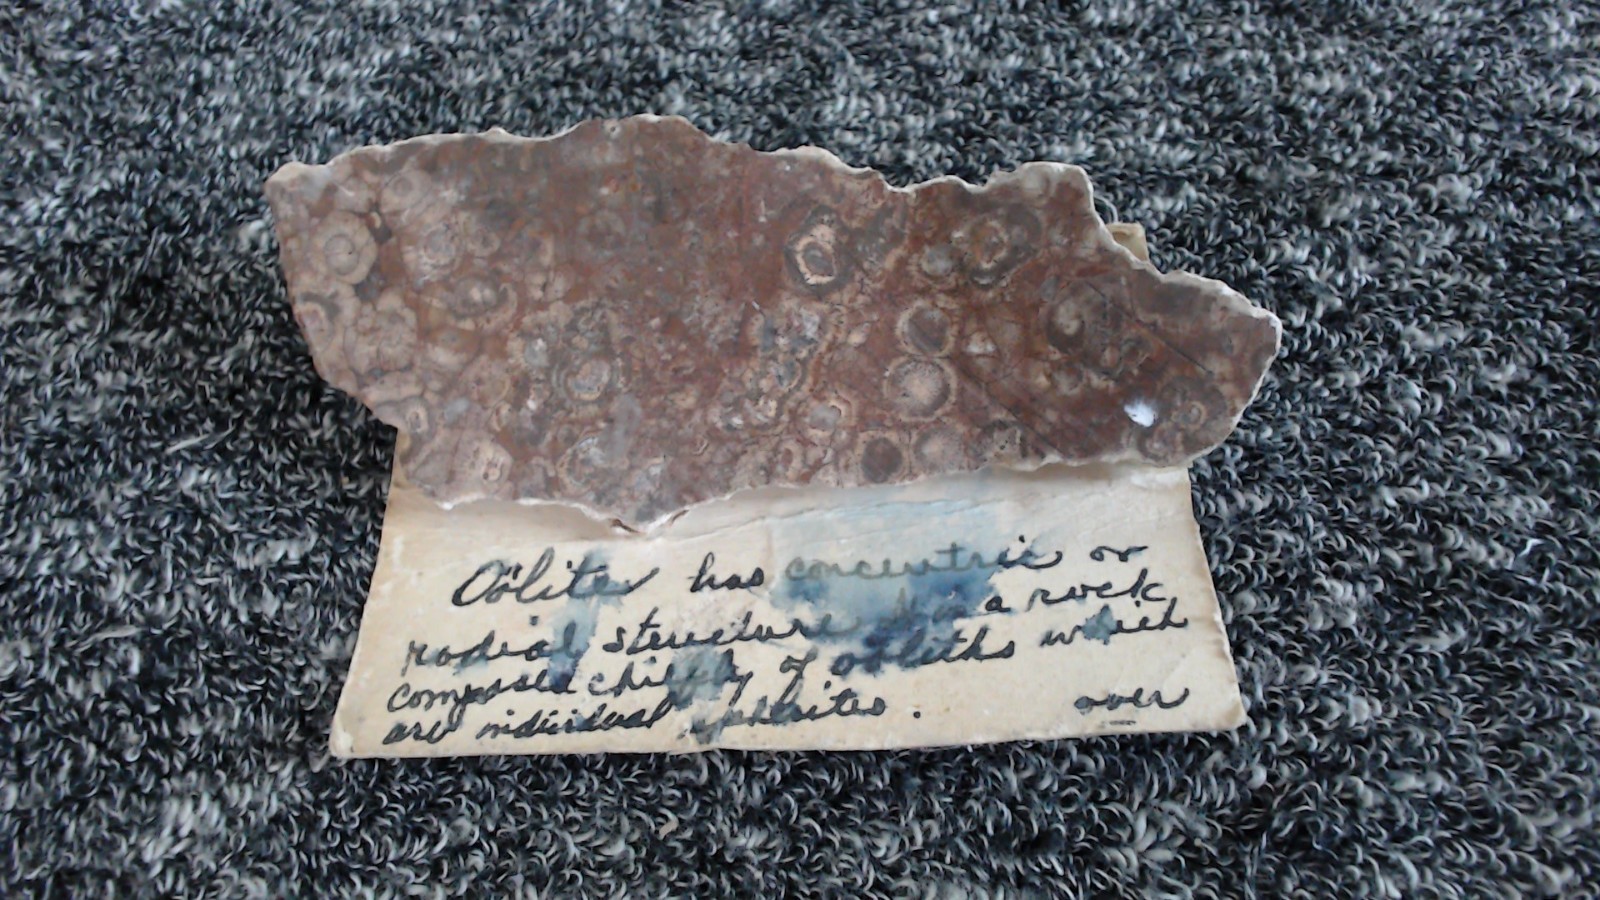 Oölite has concentric or
radial structure a rock
composed chiefly of ooliths which
are individual spherites.
over